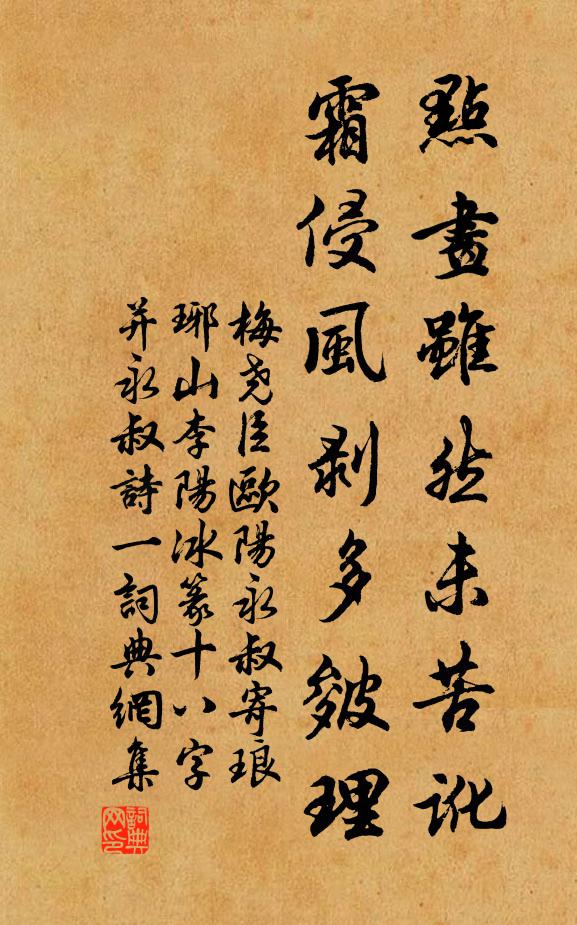 點畫雖然未苦訛
霜侵風剥多皴理
梅尧臣歐陽永叔寄琅
琊山李陽冰篆十八字
并永叔詩一詞典網集
詞典网印